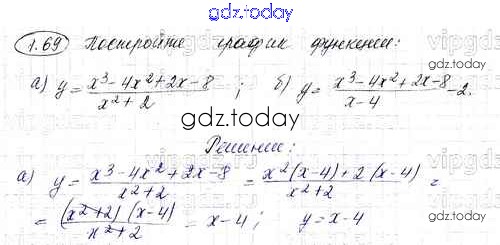 gdz.today
1.69 Постройте график функции:
а) y = (x³ - 4x² + 2x - 8)/(x² + 2) ; б) y = (x³ - 4x² + 2x - 8)/(x - 4) - 2.
gdz.today
Решение:
а) y = (x³ - 4x² + 2x - 8)/(x² + 2) = (x²(x - 4) + 2(x - 4))/(x² + 2) =
= ((x² + 2)(x - 4))/(x² + 2) = x - 4 ; y = x - 4
gdz.today